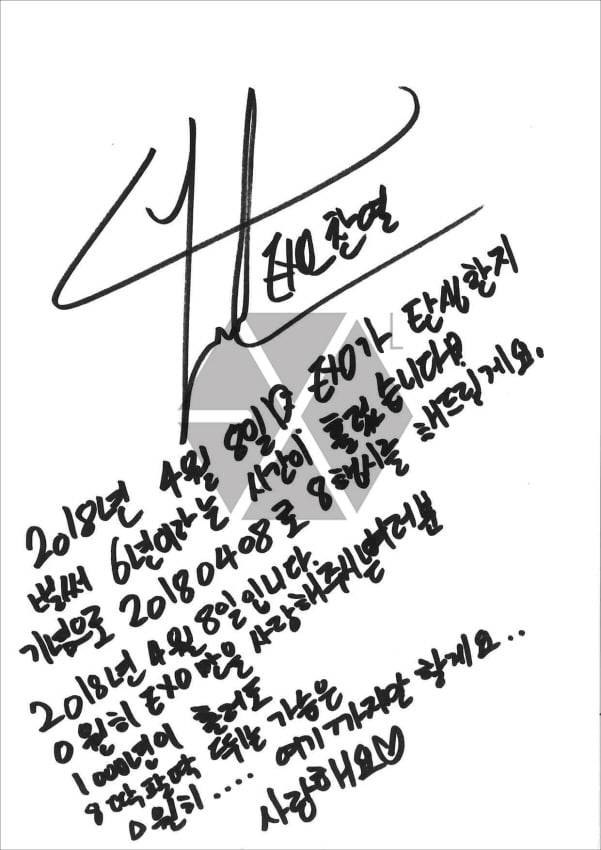 EXO 찬열
L
2018년 4월 8일☆ EXO가 탄생한지
벌써 6년이라는 시간이 흘렀습니다!
기념으로 20180408로 8행시를 해드릴게요.
2018년 4월 8일입니다.
0원히 EXO만을 사랑해주시는 여러분
1000년이 흘러도
8딱팔딱 뛰는 가슴은
0원히.... 여기까지만 할게요..
사랑해요♡